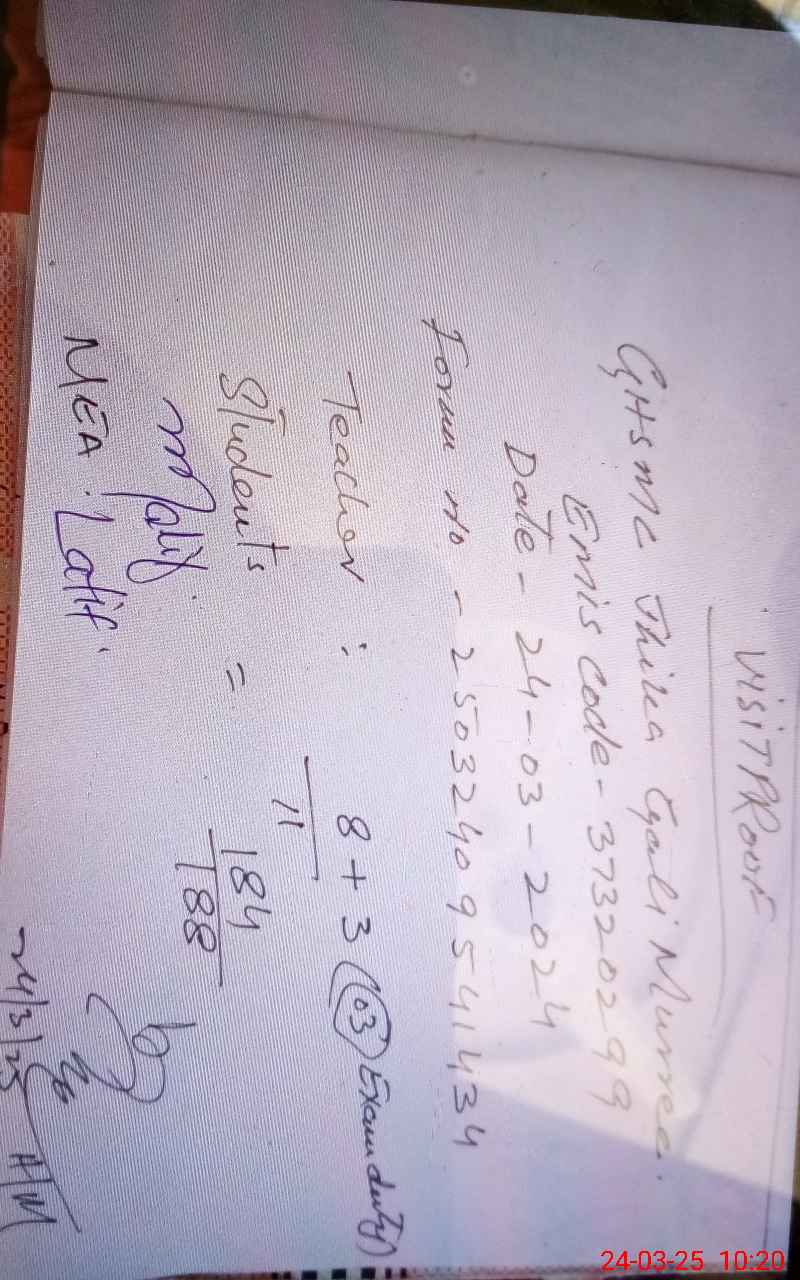 VISIT PROOF
GHSMC Jhika Gali Murree.
Emis code - 37320299
Date - 24-03-2024
Form No - 2503240954 1434
Teacher : 8 + 3 (03) Exam duty)
11
Students = 184
188
MEA. Latif.
24/3/25 HM
24-03-25 10:20